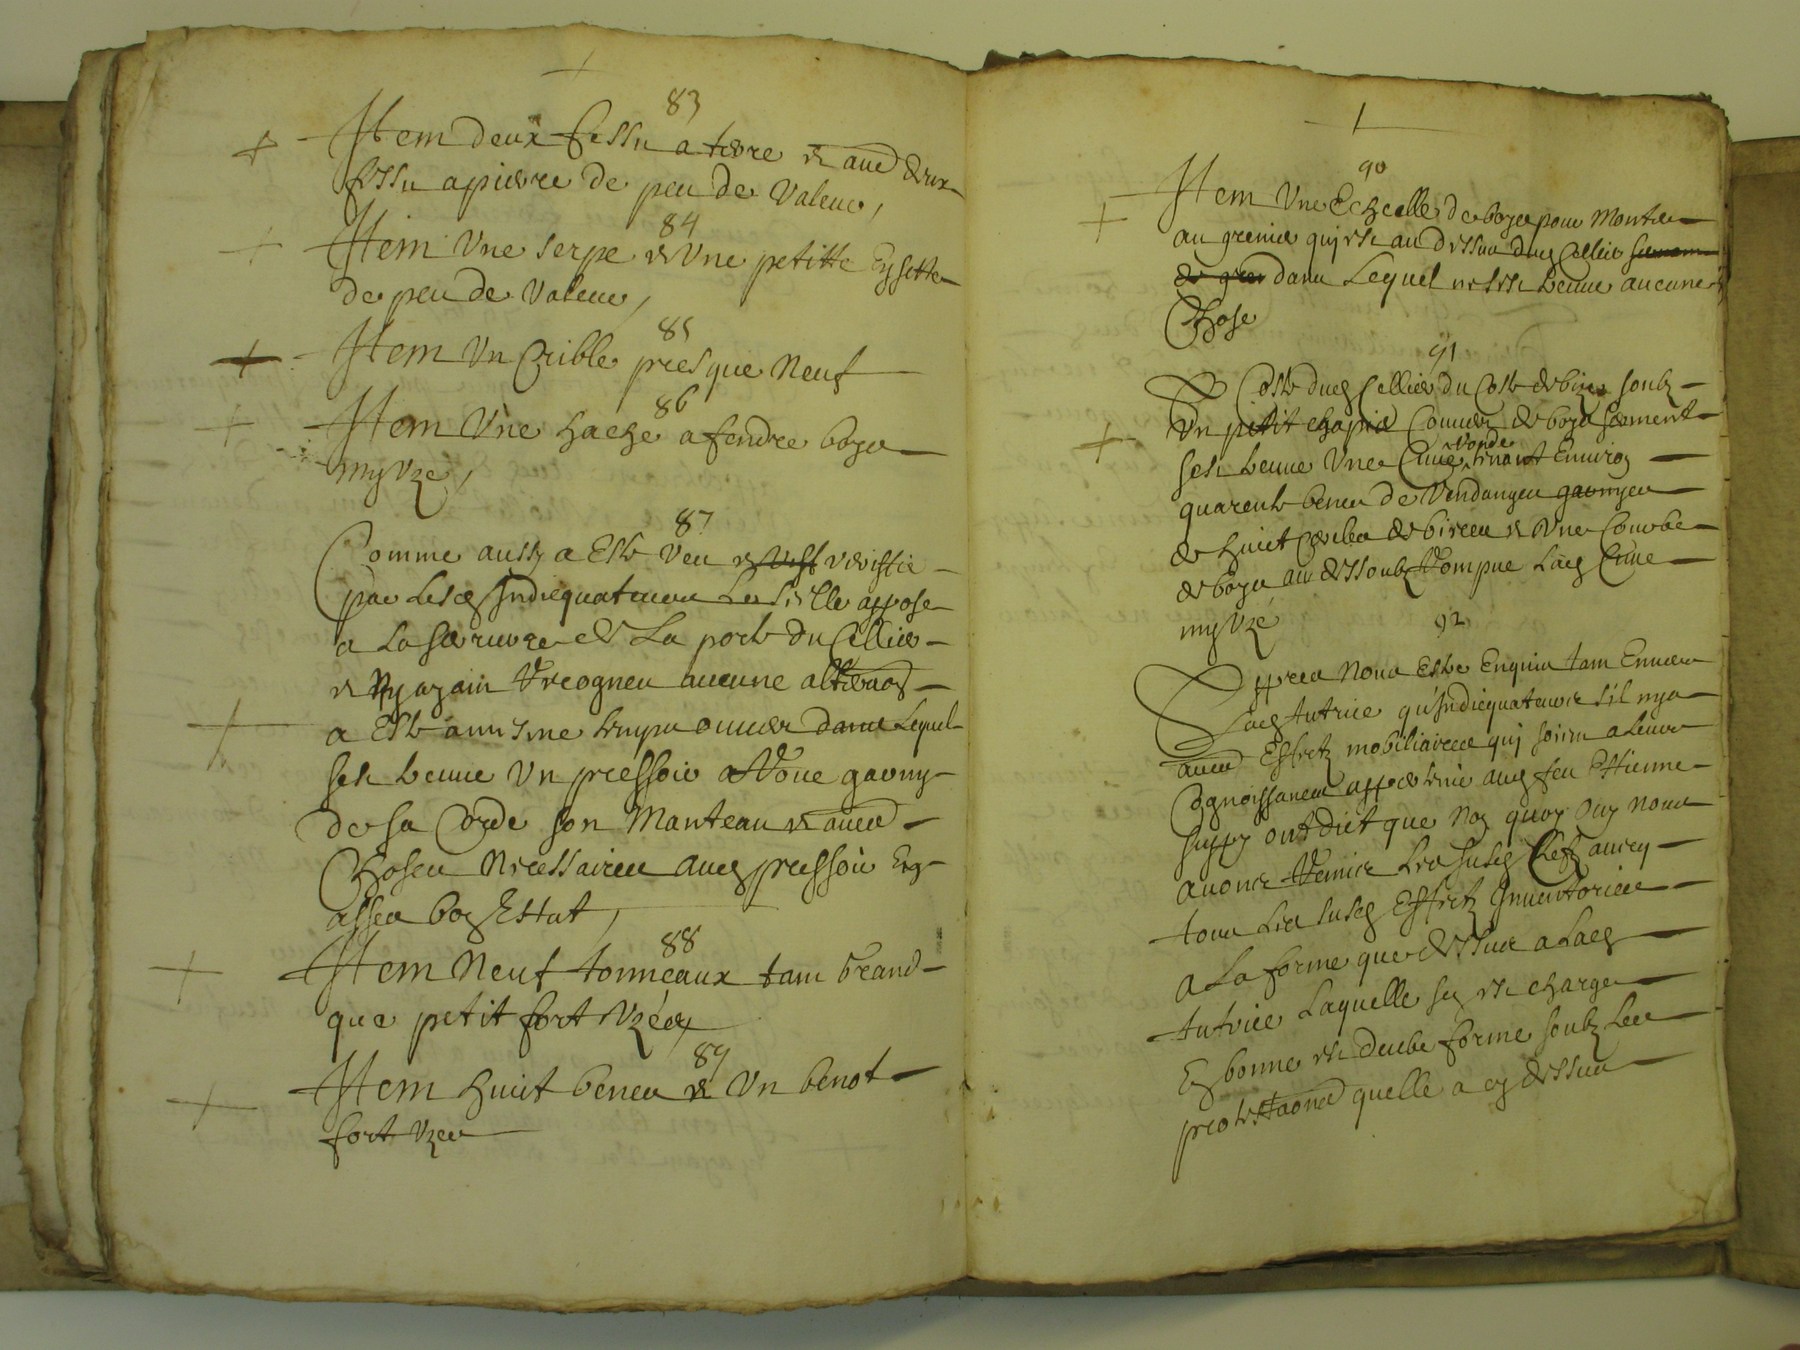 83
Item deux fessu a terre et aue deux
fessu a pierre de peu de valeur,
84
Item Une serpe et Une petitte Eysette
de peu de valeur,
85
Item Un Crible presque neuf
86
Item Une hache a fendre boys
my Uzé,
87
Comme aussy a Esté Veu et vériffié
par Lesd Indicquateurs Le séelle apposé
a La serrure de La porte du Cellier
et Ny ayain recogneu aucune alteraõn
a Esté au mesme temps ouuer dans Lequel
sest treuue Un pressoir a Voue garny
de sa Corde son Manteau et autres
Choses Necessaires aud pressoir En
asses bon Estat,
88
Item Neuf tonneaux tam Grand
que petit fort Uzés
89
Item huict benes et Un benot
fort Uzes
90
Item Une Echelle de boys pour Monter
au grenier qui est au dessus dud Cellier
dans Lequel ne sest treuue aucune
Chose
91
A Costé dud Cellier du Costé de bize soubz
Un petit chapit Couuer de boys
sest treuue Une Cuue ronde tenant Enuiron
quarente benes de Vendanges garnyes
de huict Cercles de et Une Courbe
de boys au dessoubz rompue Lad Cuue
my Uzé
92
Appres Nous Estre Enquis tam Enuers
Lad tutrice qu'Indicquateurs sil ny a
autres Effectz mobiliaires qui soient a Leurs
Cognoissances appartenir aud feu Estienne
ont dict que Non quoy Ouy Nous
auons remis Les susd Clefz auecq
tous Les susd Effectz Inuentoriés
a La forme que dessus a Lad
tutrice Laquelle sen est chargee
En bonne et deube forme soubz Les
protestaõns quelle a cy dessus